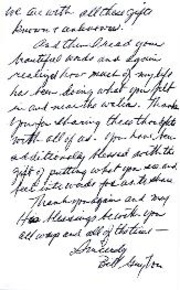 we are with all these gifts
known & unknown.
And then I read your
beautiful words and again
realized how much of my life
has been doing what you felt
in and near the water. Thank
you for sharing these thoughts
with all of us. You have been
additionally blessed with the
gift of putting what you see and
feel into words for us to share
Thank you again and may
His blessings be with you
all ways and all of the time —
Sincerely
Bill